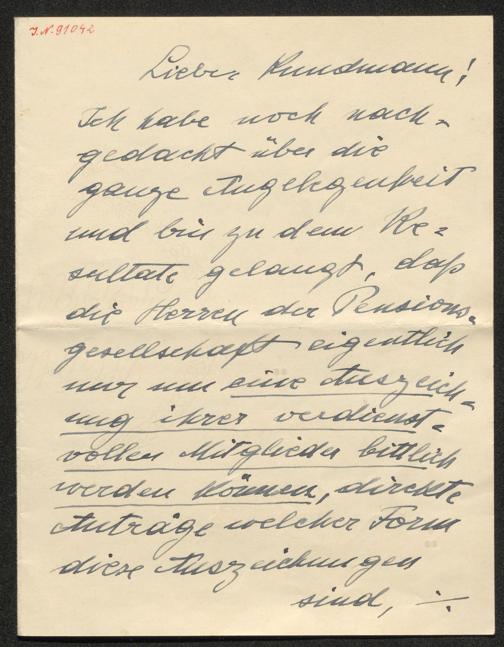 J.N. 91042
Lieber Kunzmann!
Ich habe noch nach-
gedacht über die
ganze Angelegenheit
und bin zu dem Re-
sultate gelangt, daß
die Herren der Pensions-
gesellschaft eigentlich
nur um eine Auszeich-
nung ihrer verdienst-
vollen Mitglieder bittlich
werden können, direkte
Anträge welcher Form
diese Auszeichnungen
sind, ./.